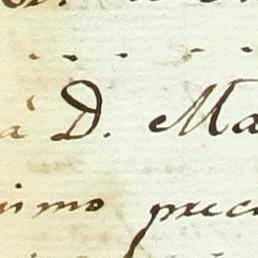 à D. Ma
imo prec